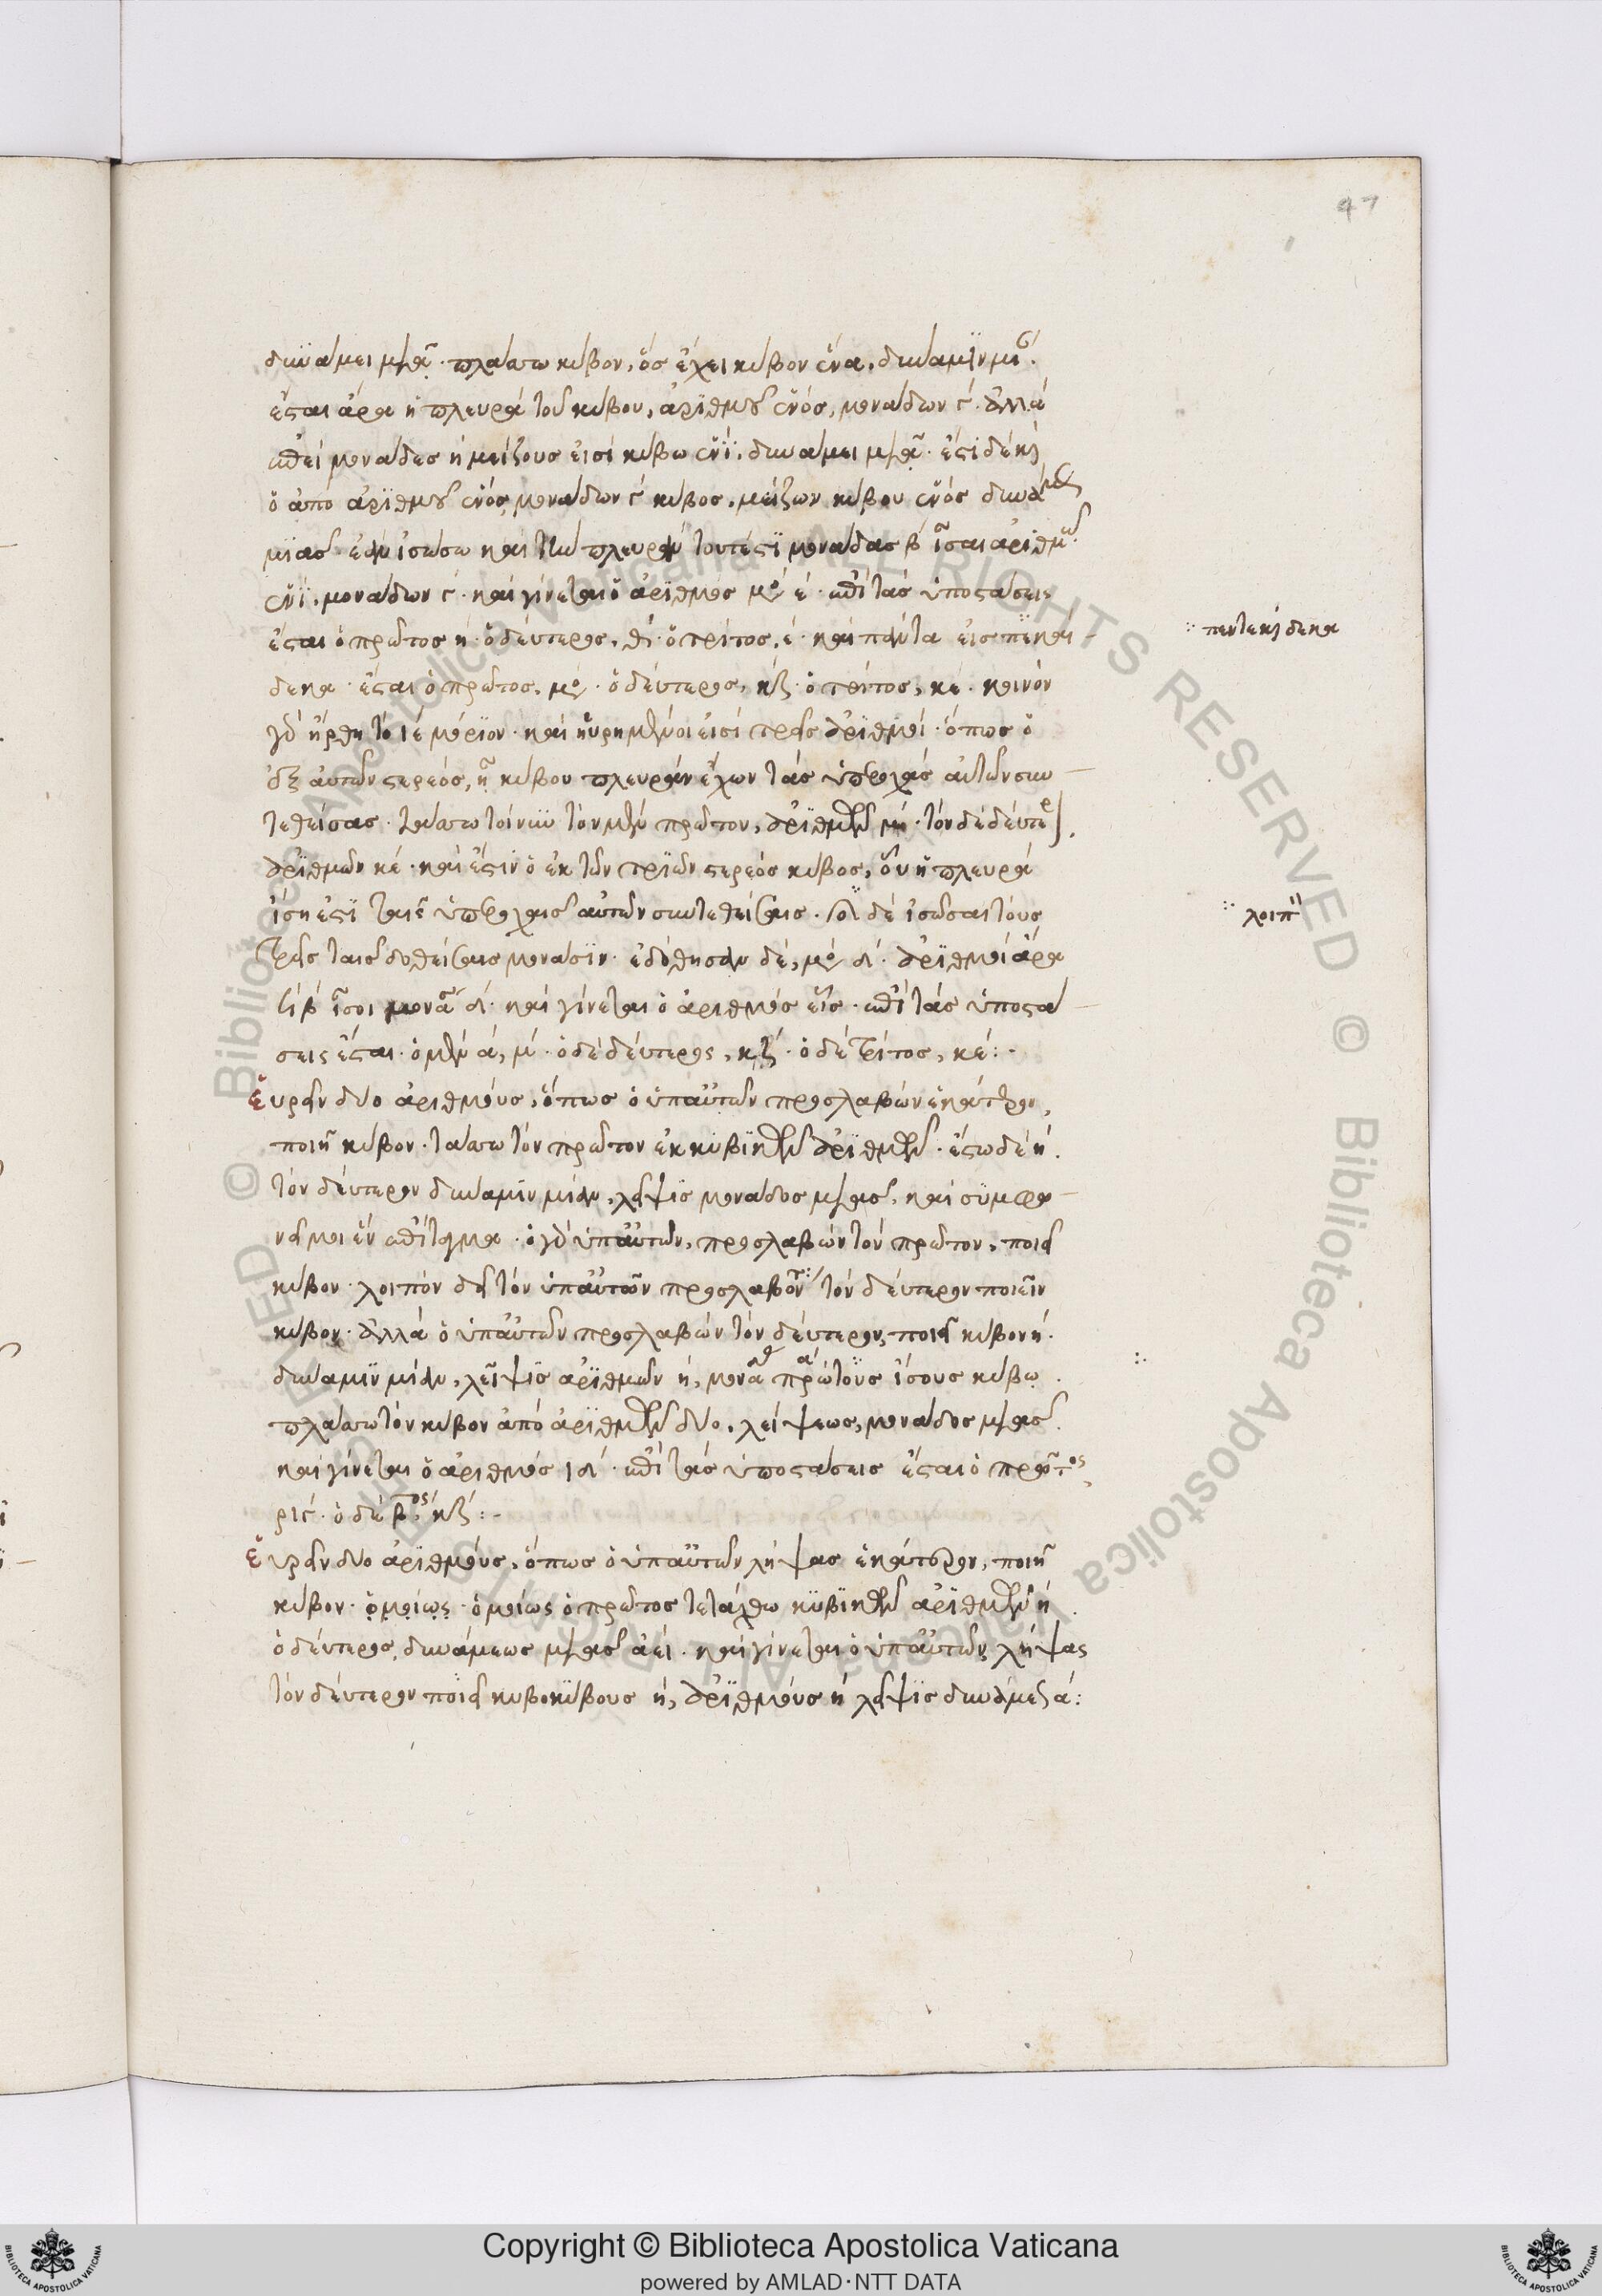 47
δυνάμει μιᾷ. πλάσσω κύβον, ὅς ἔχει κύβον ἕνα, δυναμιν μι
ἔσται ἄρα ἡ πλευρά τοῦ κύβου, ἀριθμοῦ ἑνός, μονάδων ϛ. ἀλλά
ἐπεί μονάδες ἡ μείζους εἰσί κύβω ἑνί. δυνάμει μιᾷ. ἔστι δέ καὶ
ὁ ἀπό ἀριθμοῦ ἑνός μονάδων ϛ κύβος, μείζων κύβου ἑνός δυνάμεως
μιᾶς. ἐάν ἰσώσω καί τὴν πλευράν τουτέστι μονάδας β ἴσαι ἀριθμῶ
ἑνί. μονάδων ϛ. καί γίνεται ὁ ἀριθμός μο ε. ἐπί τάς ὑποστάσεις
ἔσται ὁ πρῶτος η. ὁ δεύτερος, θ. ὁ τρίτος, ε. καί πάντα εἰς πεκαι
δεκα. ἔσται ὁ πρῶτος, μο. ὁ δεύτερος, κζ. ὁ τρίτος, κε. κοινόν
γὰρ ἤρθη τό ιε μόριον. καί ηὑρημένοι εἰσί τρεῖς ἀριθμοί. ὅπως ὁ
ἐξ αὐτῶν στερεός, ᾖ κύβου πλευράν ἔχων τάς ὑπεροχάς αὐτῶν συν
τεθείσας. τάσσω τοίνυν τόν μέν πρῶτον, ἀριθμῶν μ. τόν δέ δεύτε
ἀριθμῶν κε. καί ἔστιν ὁ ἐκ τῶν τριῶν στερεός κύβος, οὗ ἡ πλευρά
ἴση ἐστί ταῖς ὑπεροχαῖς αὐτῶν συντεθείσαις. δέ ἰσῶσαι τούς
τρεῖς ταῖς δοθείσαις μονάσιν. ἐδόθησαν δέ, μο δ. ἀριθμοί ἄρα
β ἴσοι μονα δ. καί γίνεται ὁ ἀριθμός εἷς. ἐπί τάς ὑποστά
σεις ἔσται. ὁ μέν α, μ. ὁ δέ δεύτερος, κζ. ὁ δέ τρίτος, κε:
εὑρεῖν δύο ἀριθμούς, ὅπως ὁ ὑπ' αὐτῶν προσλαβών ἑκάτερον,
ποιῇ κύβον. τάσσω τόν πρῶτον ἐκ κυβικῶν ἀριθμῶν. ἔστω δέ η.
τόν δεύτερον δύναμιν μίαν, λεῖψις μονάδος μιᾶς, καί σύμφω
νεῖ μοι ἕν ἐπίταγμα. ὁ γὰρ ὑπ' αὐτῶν, προσλαβών τόν πρῶτον, ποιεῖ
κύβον. λοιπόν δεῖ τόν ὑπ' αὐτῶν προσλαβόντα τόν δεύτερον ποιεῖν
κύβον. ἀλλά ὁ ὑπ' αὐτῶν προσλαβών τόν δεύτερον, ποιεῖ κύβον η.
δύναμιν μίαν, λεῖψις ἀριθμῶν η, μονα πρώτους ἴσους κύβῳ.
πλάσσω τόν κύβον ἀπό ἀριθμῶν δύο, λείψεως, μονάδος μιᾶς.
καί γίνεται ὁ ἀριθμός ιδ. ἐπί τάς ὑποστάσεις ἔσται ὁ πρῶτος
ριϛ. ὁ δέ βος κζ:
εὑρεῖν δύο ἀριθμούς, ὅπως ὁ ὑπ' αὐτῶν λήψας ἑκάτερον, ποιῇ
κύβον. ὁμοίως. ὁμοίως ὁ πρῶτος τετάχθω κυβικῶν ἀριθμῶν η
ὁ δεύτερος, δυνάμεως μιᾶς ἀεί. καί γίνεται ὁ ὑπ' αὐτῶν λήψας
τόν δεύτερον ποιεῖ κυβοκύβους η, ἀριθμούς η λεῖψις δυνάμεις α:
πεντεκαὶδεκα
λοιπ
Copyright © Biblioteca Apostolica Vaticana
powered by AMLAD·NTT DATA